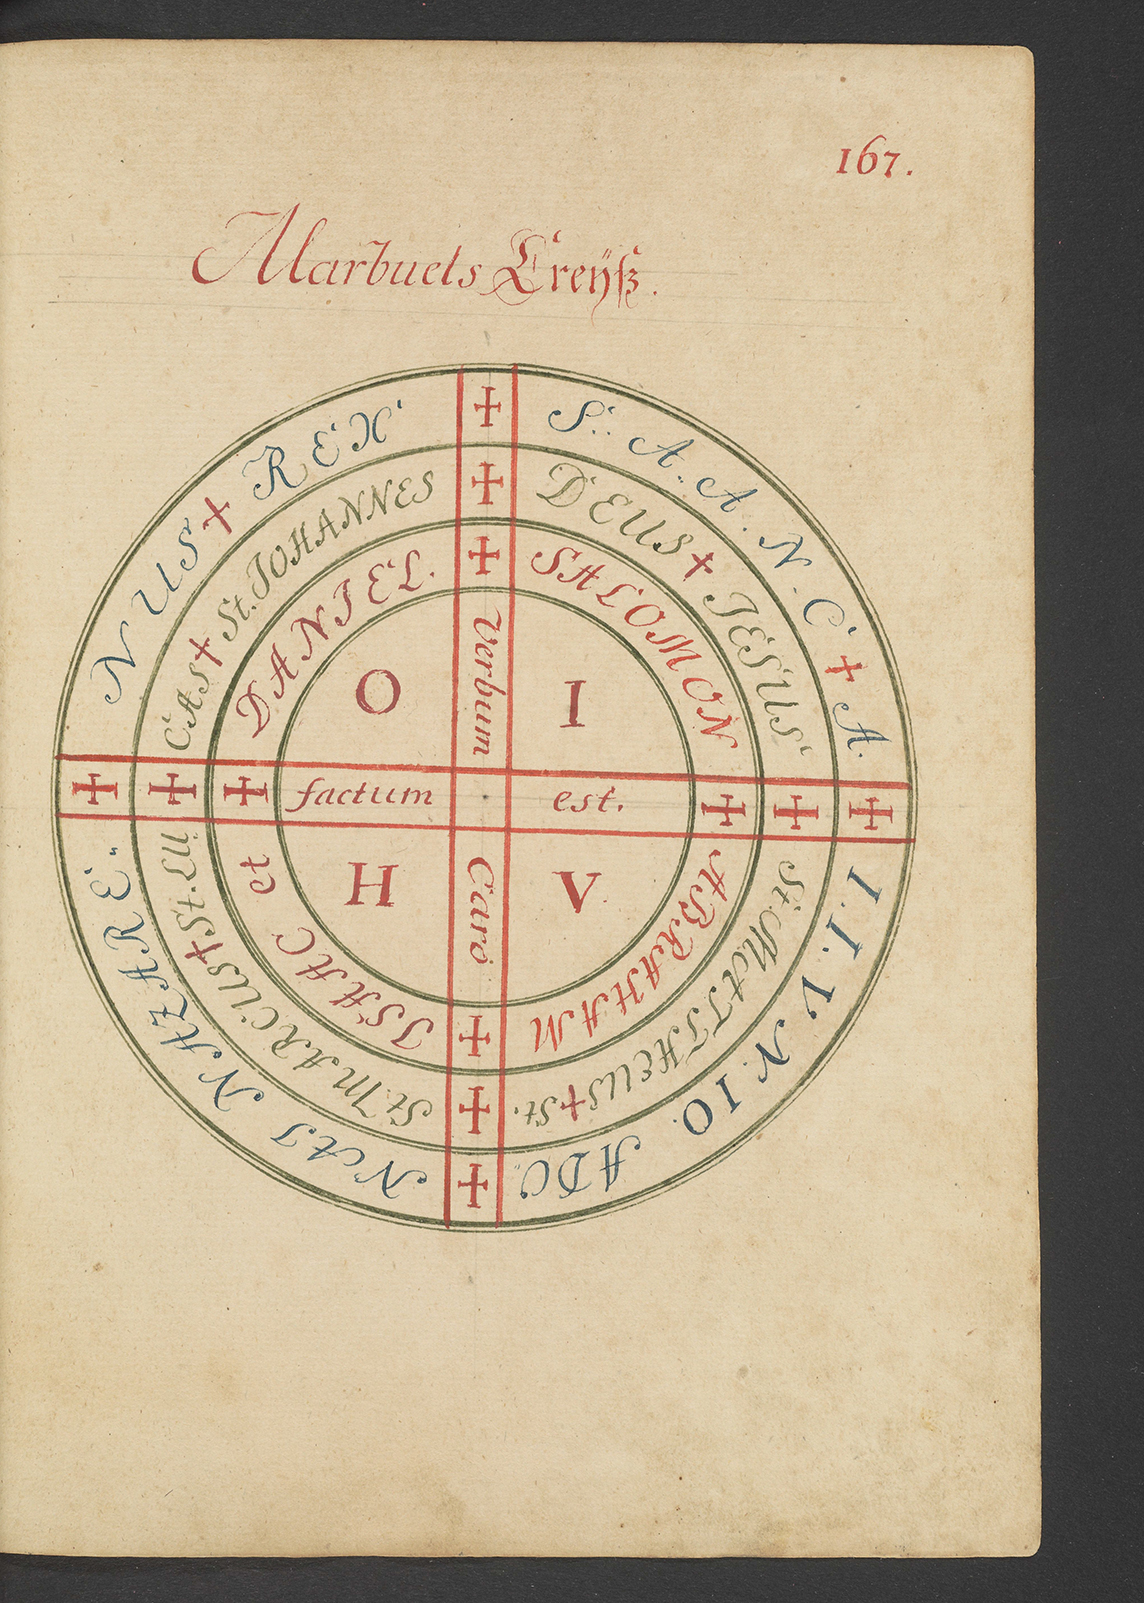 167.
Marbuels Creÿß.
✠ S. A. A. N. C + A.
✠ I. I. V N. IO. ADO.
✠ NAI NAZARE.
✠ NUS + REX
✠ DEUS + JESUS
✠ St. MATTHEUS + St.
✠ St. MARCUS + St. LU
✠ CAS + St. JOHANNES
✠ SALOMON
✠ ABRAHAM
✠ ISAAC et
✠ DANIEL.
Verbum
Caro
factum est.
O I
H V